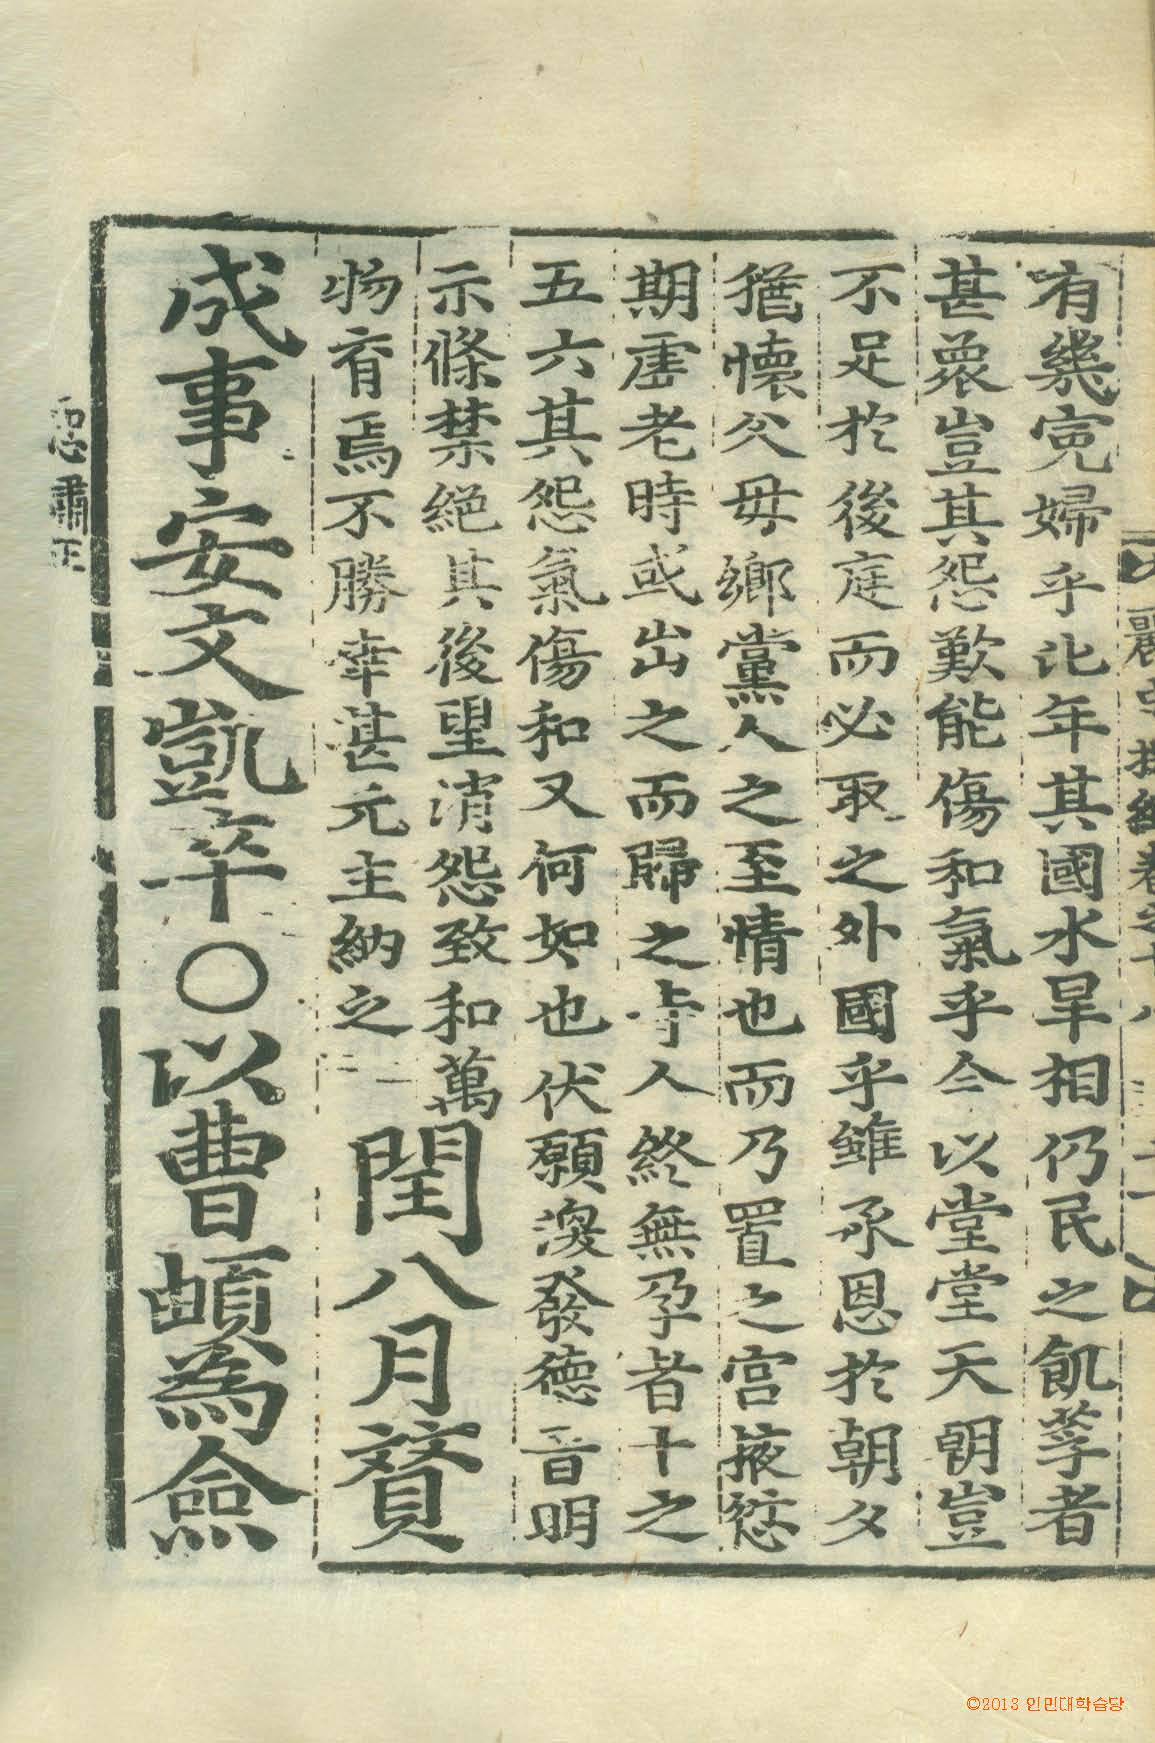 有幾寃婦乎比年其國水旱相仍民之飢莩者
甚衆豈其怨歎能傷和氣乎今以堂堂天朝豈
不足於後庭而必取之外國乎雖承恩於朝夕
猶懷父母鄕黨人之至情也而乃置之宮掖愆
期虛老時或出之而歸之寺人終無孕者十之
五六其怨氣傷和又何如也伏願渙發德音明
示條禁絕其後望消怨致和萬
物育焉不勝幸甚元主納之
閏八月贊
成事安文凱卒○以曹頔爲僉
麗史提綱卷之十八
©2013 인민대학습당